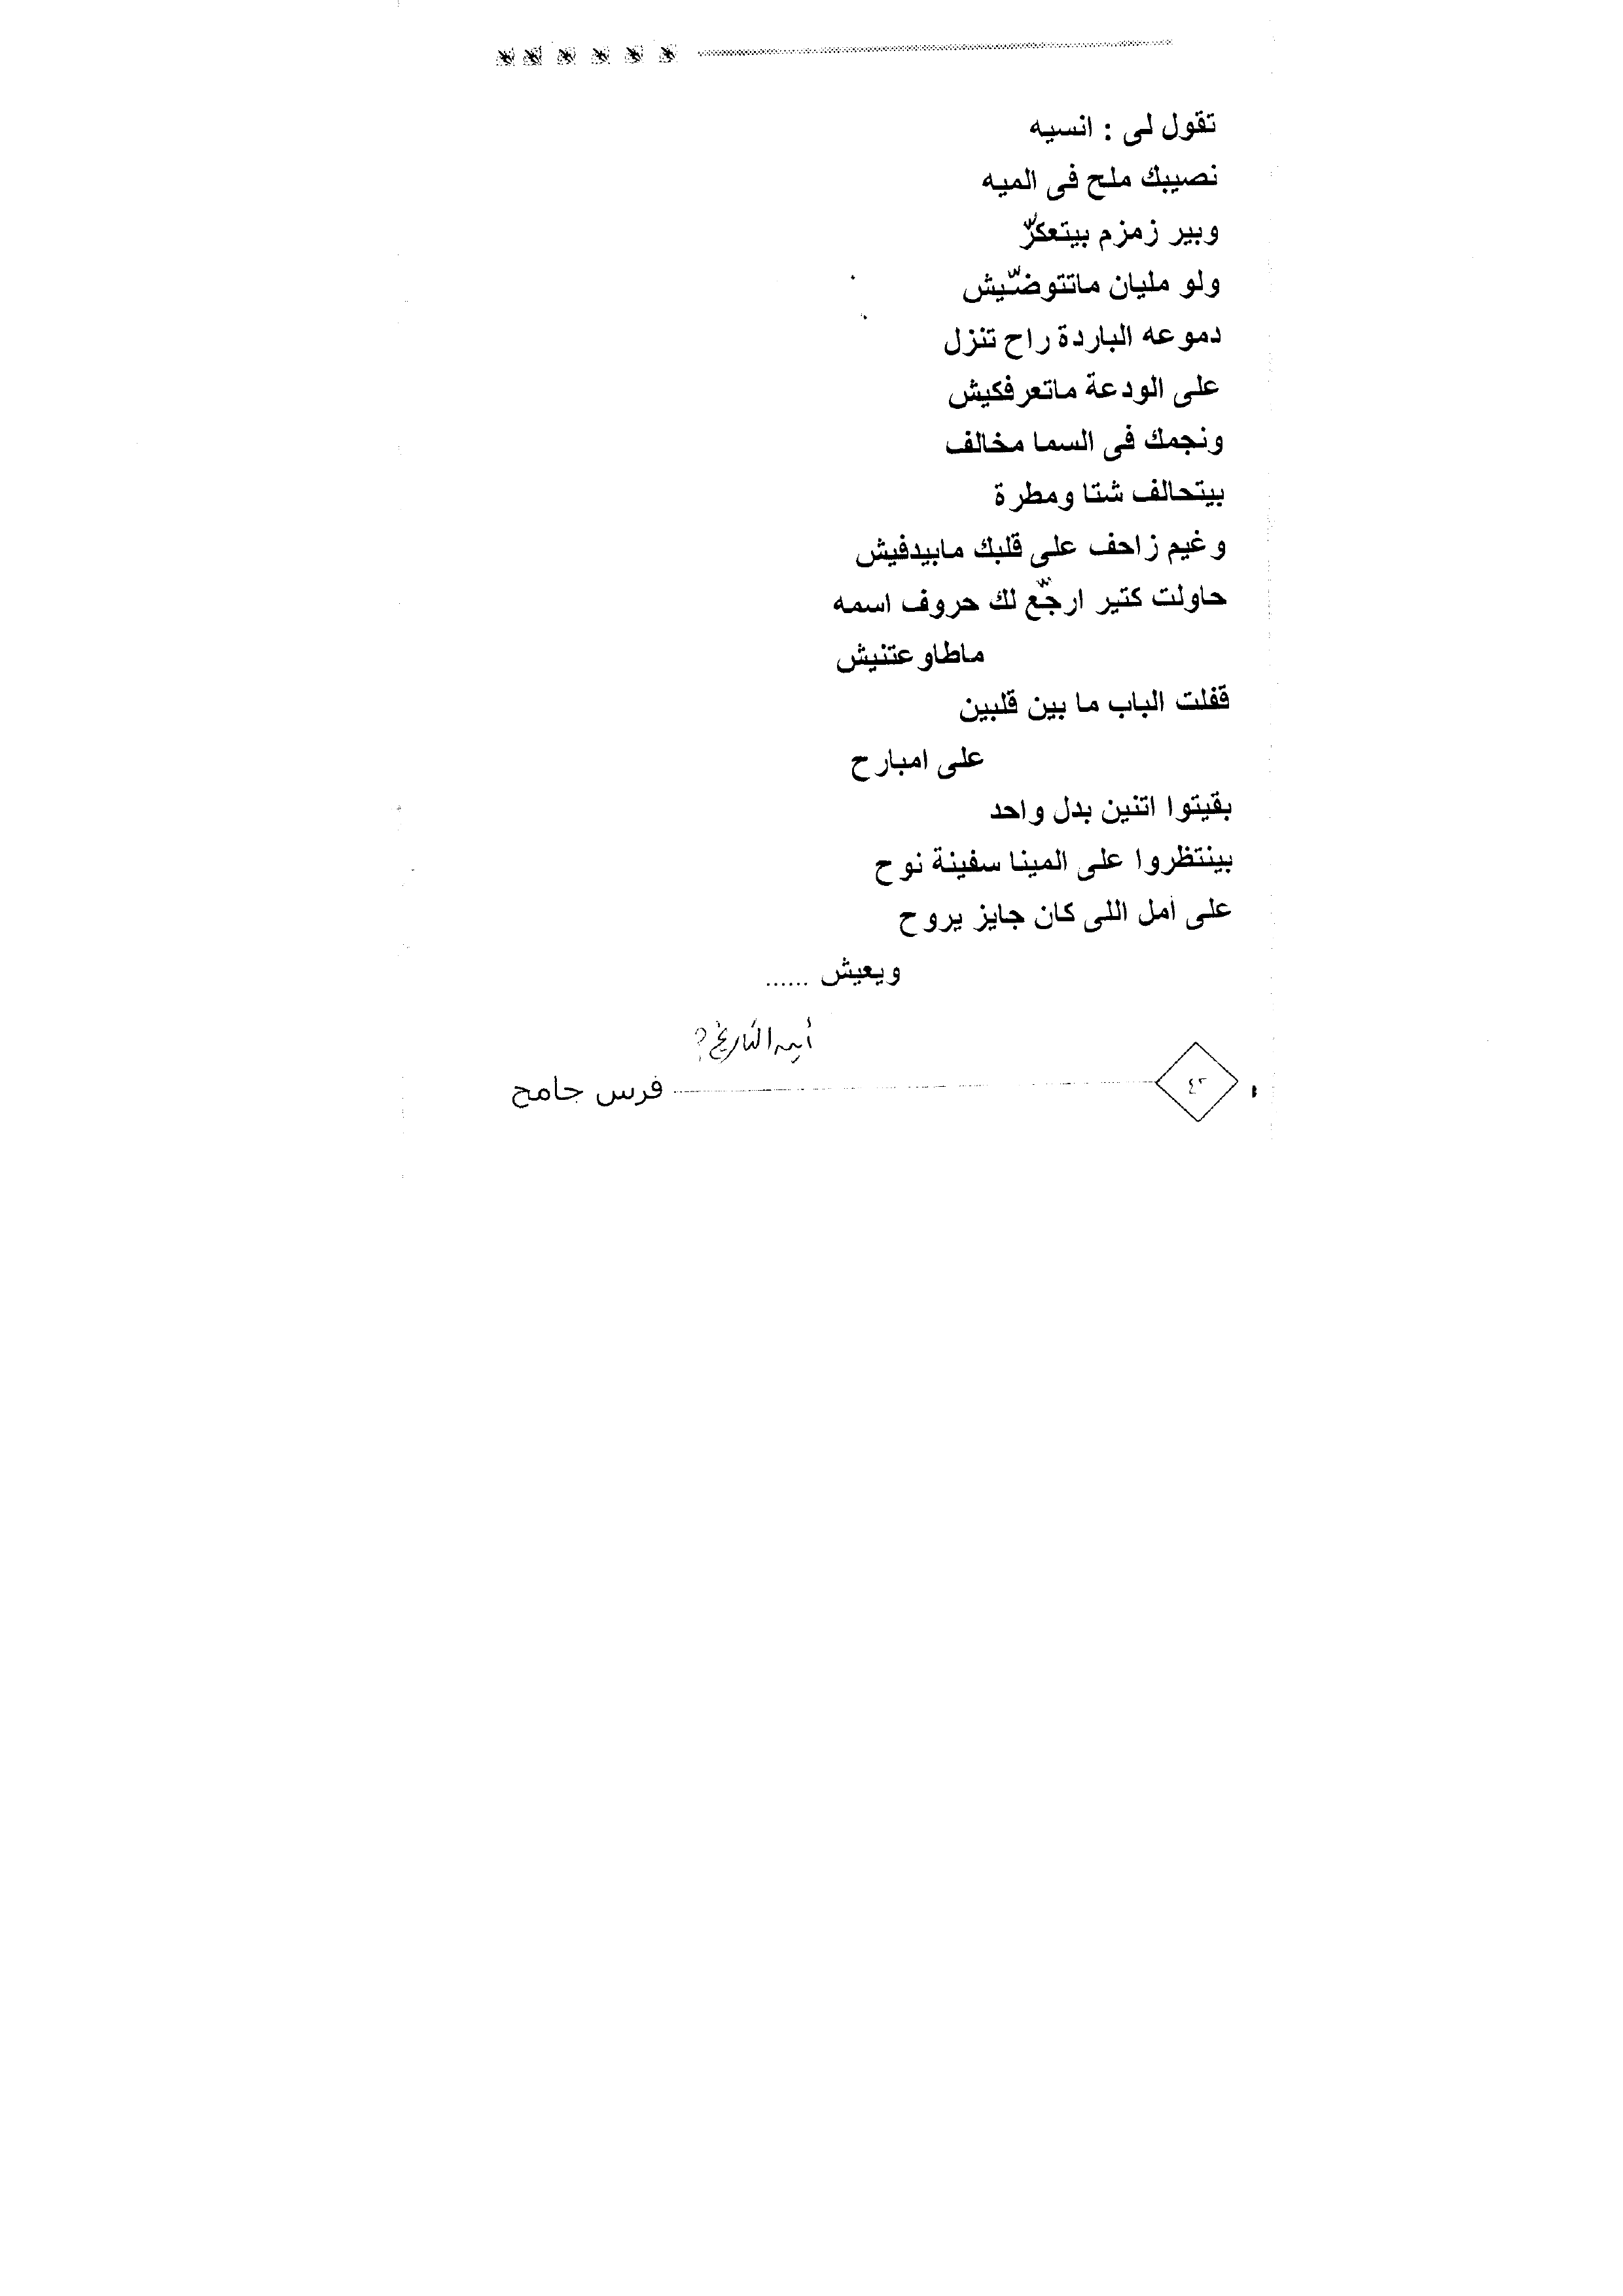 تقول لى : انسيه
نصيبك ملح فى الميه
وبير زمزم بيتعكرّ
ولو مليان ماتتوضّيش
دموعه الباردة راح تنزل
على الودعة ماتعرفكيش
ونجمك فى السما مخالف
بيتحالف شتا ومطرة
وغيم زاحف على قلبك مابيدفيش
حاولت كتير ارجّع لك حروف اسمه
ماطاوعتنيش
قفلت الباب ما بين قلبين
على امبارح
بقيتوا اتنين بدل واحد
بينتظروا على المينا سفينة نوح
على أمل اللى كان جايز يروح
ويعيش ......
أين التاريخ؟
فرس جامح